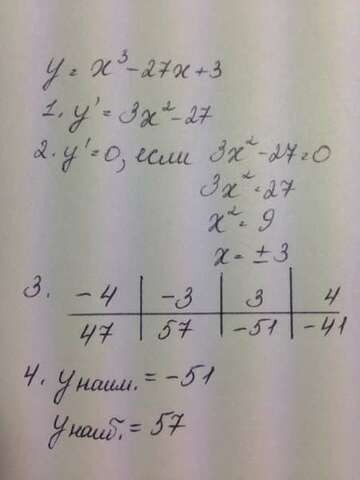 y = x³ - 27x + 3
1. y' = 3x² - 27
2. y' = 0, если 3x² - 27 = 0
3x² = 27
x² = 9
x = ± 3
3. -4 | -3 | 3 | 4
47 | 57 | -51 | -41
4. yнаим. = -51
yнаиб. = 57